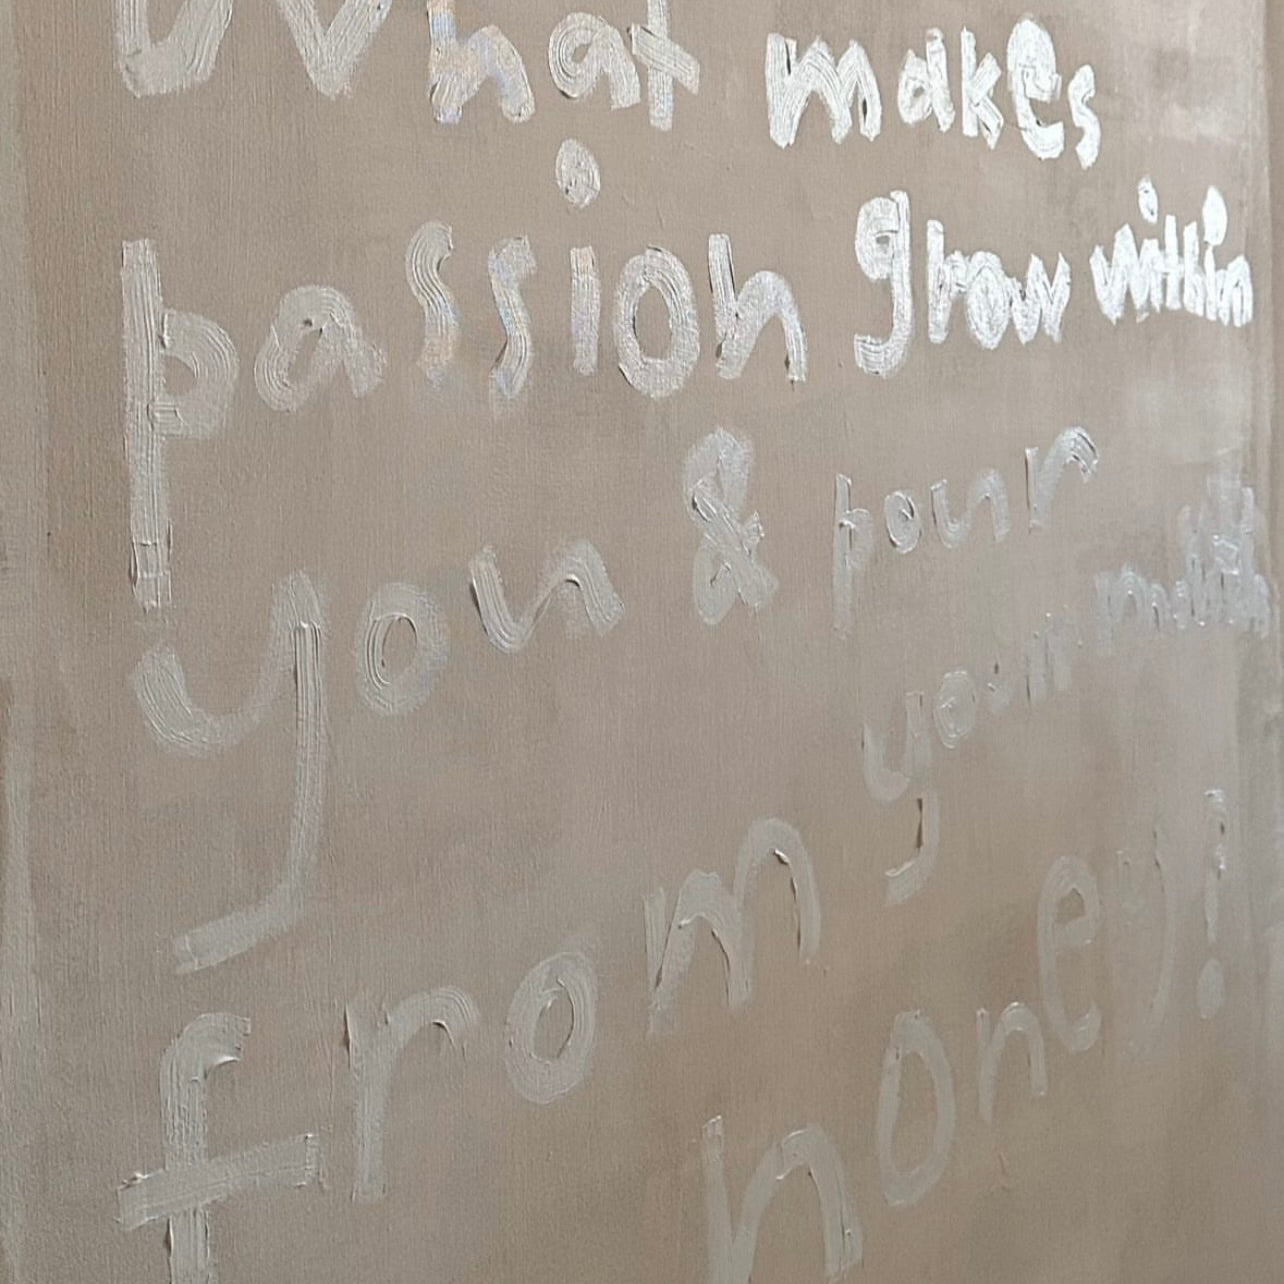 What makes
passion grow within
you & pour
your
from
honey!